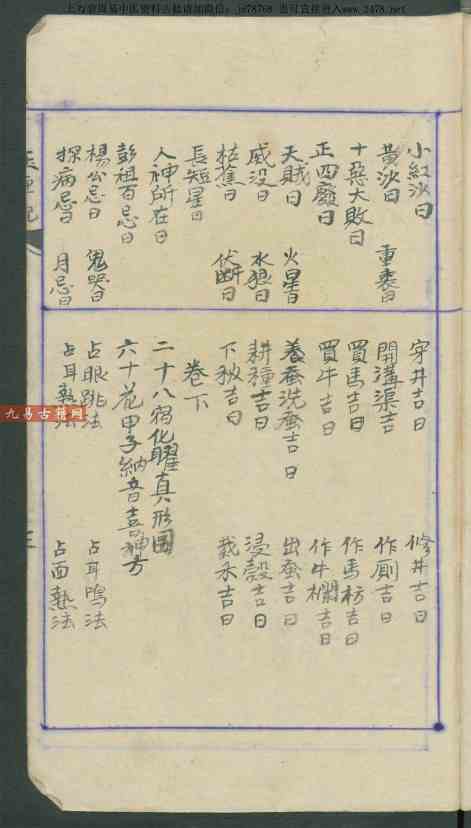 小紅沙日
黃沙日 重喪日
十惡大敗日
正四廢日
天賊日 火星日
滅没日 水狼日
枯蕉日 伏断日
長短星日
人神所在日
彭祖百忌日
楊公忌日 鬼哭日
探病忌日 月忌日
穿井吉日 修井吉日
開溝渠吉 作厠吉日
買馬吉日 作馬枋吉日
買牛吉日 作牛欄吉日
養蚕洗蚕吉日 出蚕吉日
耕種吉日 浸穀吉日
下秧吉日 栽禾吉日
卷下
二十八宿化曜真形圖
六十花甲子納音喜神方
占眼跳法 占耳鳴法
占耳熱法 占面熱法
九易古籍网